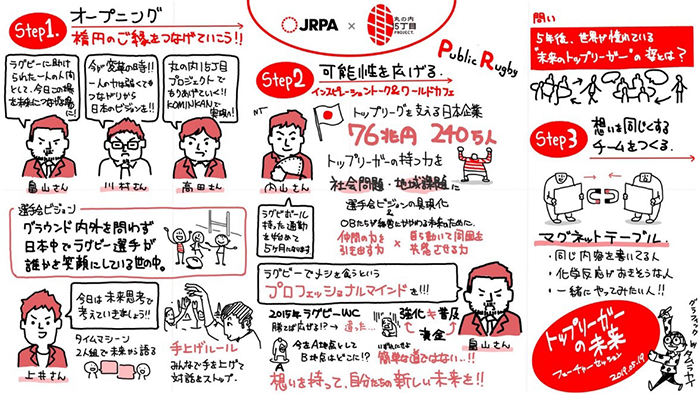 Step1.
オープニング
楕円のご縁をつなげていこう!!
ラグビーに助け
られた一人の人間
として、今日この場を
未来につなげる場に!
畠山さん
今が変革の時!!
一人の力は弱くても
つながりから
日本のビジョンを!!
川村さん
丸の内15丁目
プロジェクトで
もりあげていく!!
KOMINKANで
髙田さん
選手会ビジョン
グラウンド内外を問わず
日本中でラグビー選手が
誰かを笑顔にしている世の中。
今日は未来思考で
考えていきましょう!!
タイムマシーン
2人組で未来から語る
上井さん
手上げルール
みんなで手を上げて
対話をストップ。
JRPA
×
丸の内
15丁目
PROJECT.
Public Rugby
Step2
可能性を広げる。
インスピレーショントーク&ワールドカフェ
NT
内山さん
ラグビーボール
持った通勤
を始めて
5ヶ月たちます
トップリーグを支える日本企業
76兆円 240万人
トップリーガーの持つ力を
社会問題・地域課題に
選手会ビジョンの具現化
&
仲間の力を
引き出す力
×
自ら動いて周囲を
共感させる力
ラグビーでメシを食うという
プロフェッショナルマインドを!!!
畠山さん
2015年ラグビーWC
勝てば広がる!?→違った…
強化 普及
資金
今をA地点として
B地点はどこに!?
簡単な道ではない…!!
想いを持って、自分たちの新しい未来を!!
問い
5年後、世界が憧れている
"未来のトップリーガー"の姿とは?
Step3
想いを同じくする
チームをつくる。
マグネットテーブル
・同じ内容を書いてる人
・化学反応がおきそうな人
・一緒にやってみたい人!!
トップリーガー
の未来
フューチャーセッション
2019.05.19
グラフィック by